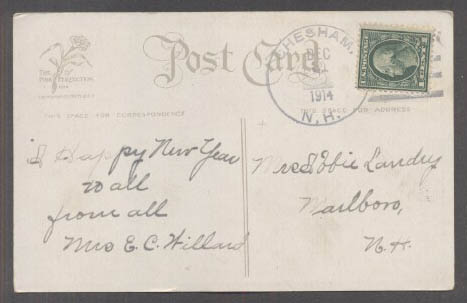 THE PINK OF PERFECTION
Post Card
CHESHAM.
DEC
1914
N.H.
THIS SPACE FOR CORRESPONDENCE
THIS SPACE FOR ADDRESS
A Happy New Year
to all
from all
Mrs E. C. Willard
Mrs Obie Landry
Marlboro,
N.H.